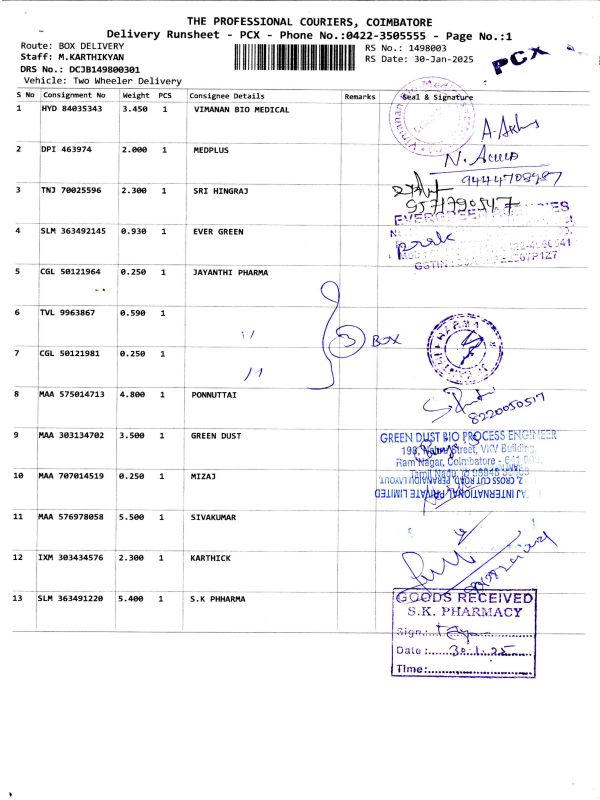 THE PROFESSIONAL COURIERS, COIMBATORE
Delivery Runsheet - PCX - Phone No.:0422-3505555 - Page No.:1
Route: BOX DELIVERY
RS No.: 1498003
Staff: M.KARTHIKYAN
RS Date: 30-Jan-2025
PCX
DRS No.: DCJB149800301
Vehicle: Two Wheeler Delivery
S No Consignment No Weight PCS Consignee Details Remarks Seal & Signature
1 HYD 84035343 3.450 1 VIMANAN BIO MEDICAL
2 DPI 463974 2.000 1 MEDPLUS
9444708987
3 TNJ 70025596 2.300 1 SRI HINGRAJ
9571790547
4 SLM 363492145 0.930 1 EVER GREEN
5 CGL 50121964 0.250 1 JAYANTHI PHARMA
6 TVL 9963867 0.590 1
" 3 BOX
7 CGL 50121981 0.250 1
"
8 MAA 575014713 4.800 1 PONNUTTAI
8220050517
9 MAA 303134702 3.500 1 GREEN DUST
GREEN DUST BIO PROCESS ENGINEER
Street, VKV Building,
Ram Nagar, Coimbatore -
10 MAA 707014519 0.250 1 MIZAJ
2, CROSS CUT ROAD,
INTERNATIONAL PRIVATE LIMITED
11 MAA 576978058 5.500 1 SIVAKUMAR
12 IXM 303434576 2.300 1 KARTHICK
13 SLM 363491220 5.400 1 S.K PHHARMA
GOODS RECEIVED
S.K. PHARMACY
Sign.:
Date : 30.1.25
Time: